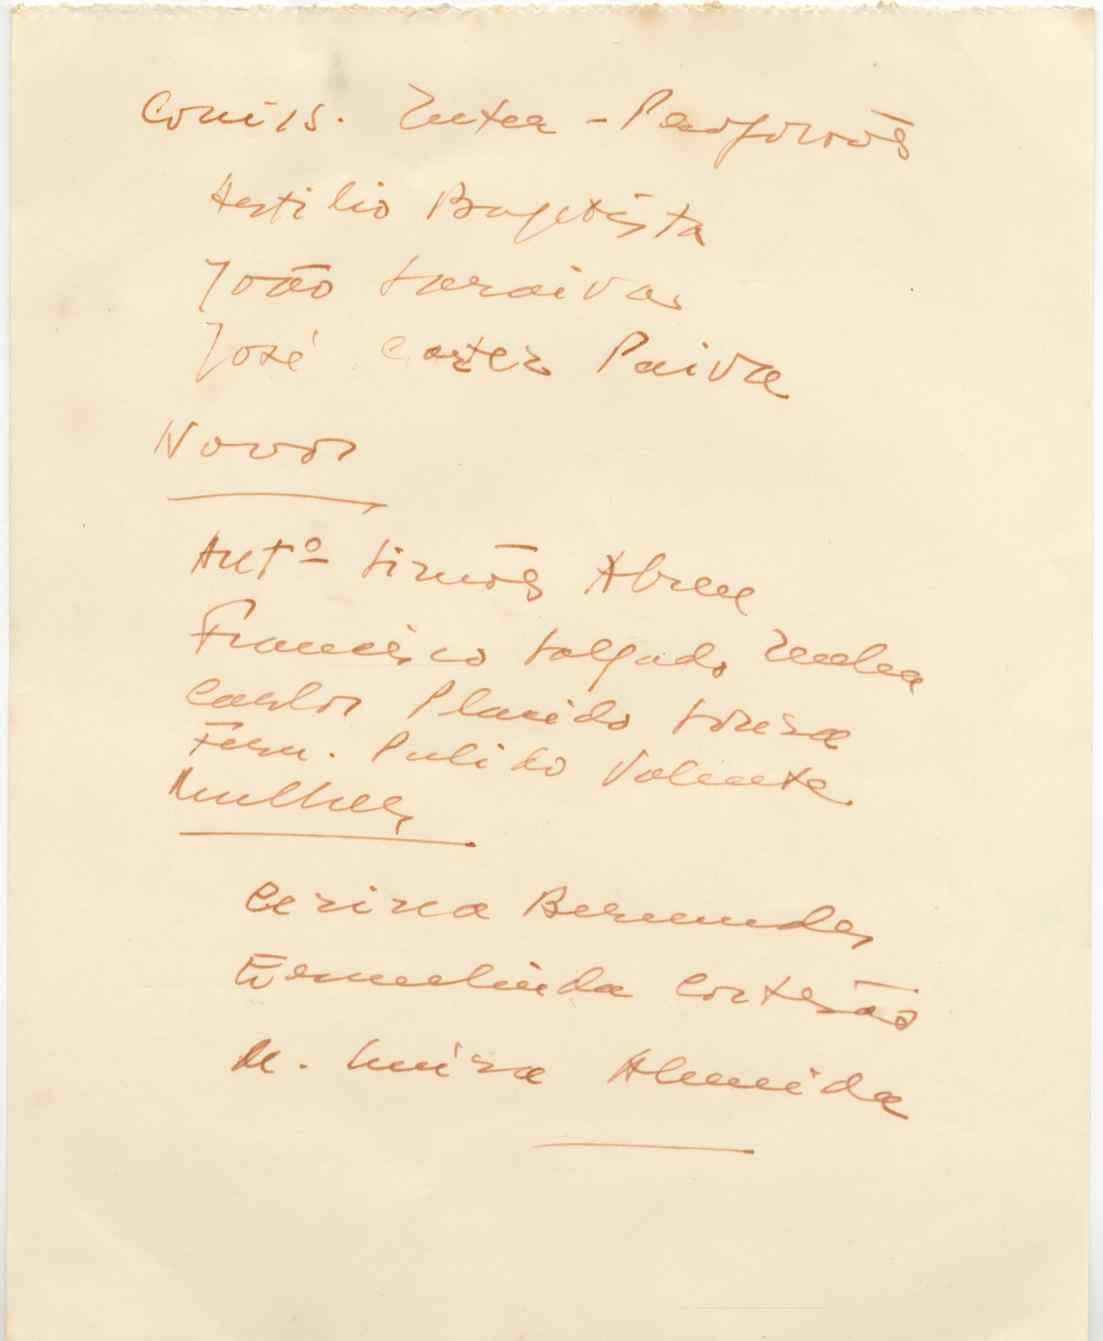 Comis. Inter-Profissões
Hertilio Baptista
João Saraiva
José Cortez Paiva
Novos
Antº Simões Abreu
Francisco Salgado Zenha
Carlos Placido Sousa
Fern. Pulido Valente
Mulheres
Cesina Bermudes
Esmelinda Cortesão
M. Luisa Almeida